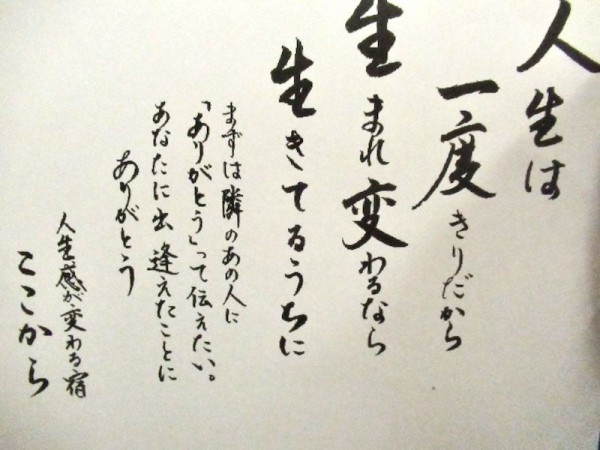 人生は
一度きりだから
生まれ変わるなら
生きてるうちに
まずは隣のあの人に
「ありがとう」って伝えたい。
あなたに出逢えたことに
ありがとう
人生感が変わる宿
ここから